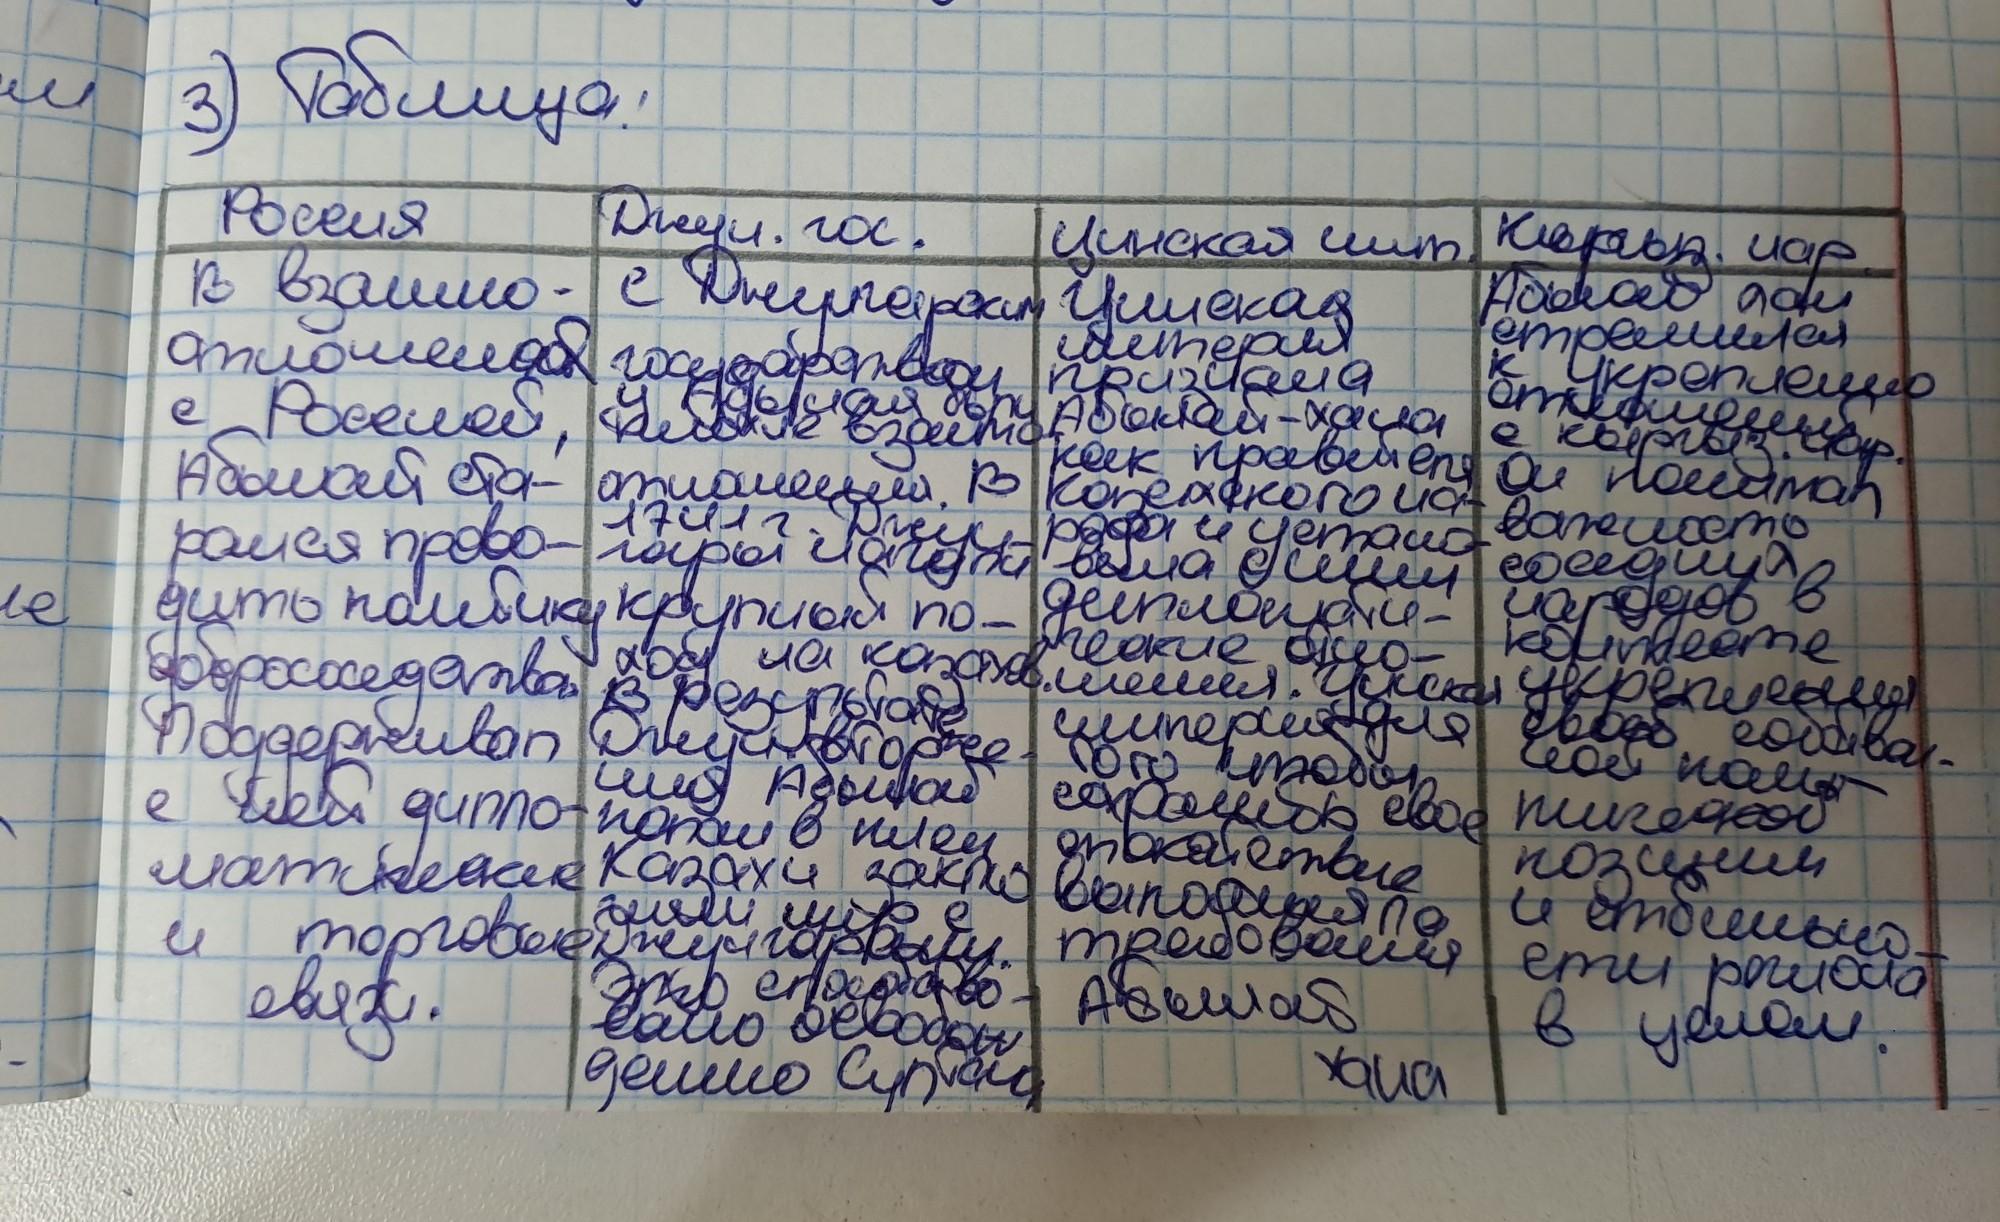 3) Таблица:
Россия
В взаимо-
отношениях
с Россией,
Аблай ста-
рался прово-
дить политику
добрососедства
Поддерживал
с ней дипло-
матические
и торговые
связи.
Джун. гос.
с Джунгарским
государством
у Абылая были
взаимо
отношения. В
1741 г. Джун-
гары начали
крупный по-
ход на казахов.
В результате
Джун. вторже-
ния Абылай
попал в плен
Казахи заклю
чили мир с
Джунгарами.
Это способство-
вало освобож
дению Султана
Цинская имп.
Цинская
империя
признала
Абылай-хана
как правителя
казахского на-
рода и устано-
вила с ним
дипломати-
ческие отно-
шения. Цинская
империя для
того чтобы
сохранить свое
спокойствие
выполняла
требования
Абылай
хана
Кыргыз. нар.
Абылай хан
стремился
к укреплению
отношений
с кыргыз. нар.
Он понимал
важность
соседних
народов в
контексте
укрепления
своей собствен-
ной поли-
тической
позиции
и стабильно-
сти региона
в целом.